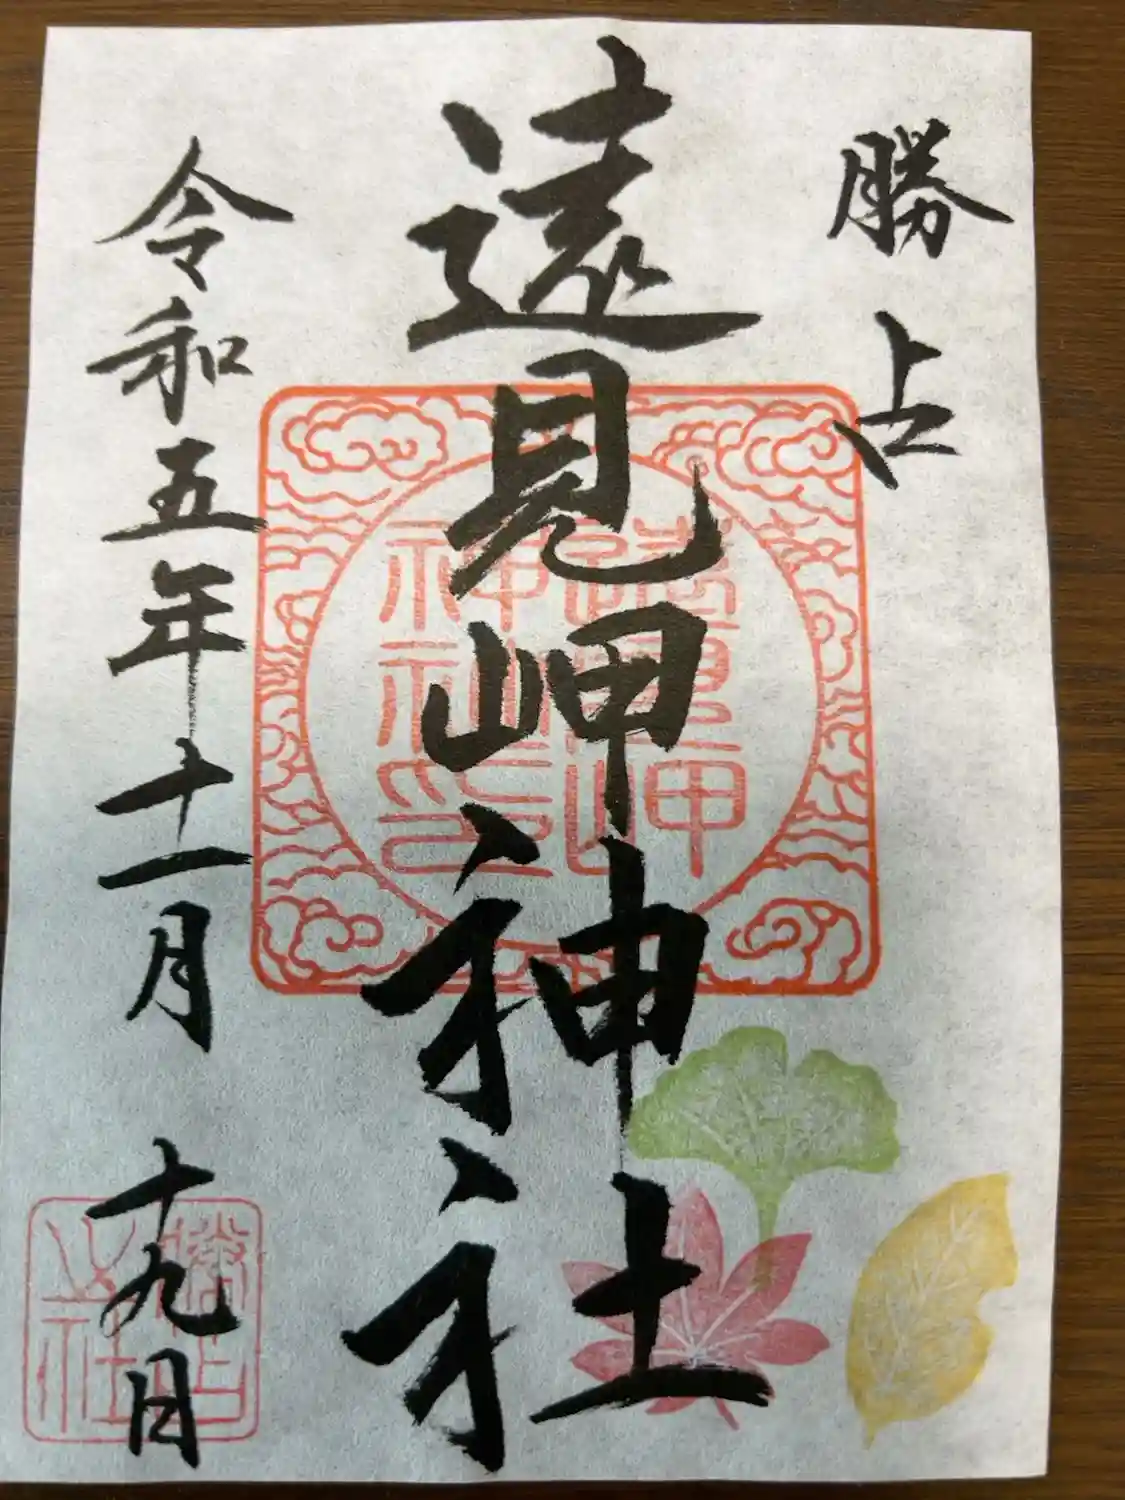 勝占
遠見岬神社
令和五年十一月十九日
遠見岬
神社印
勝占
之社